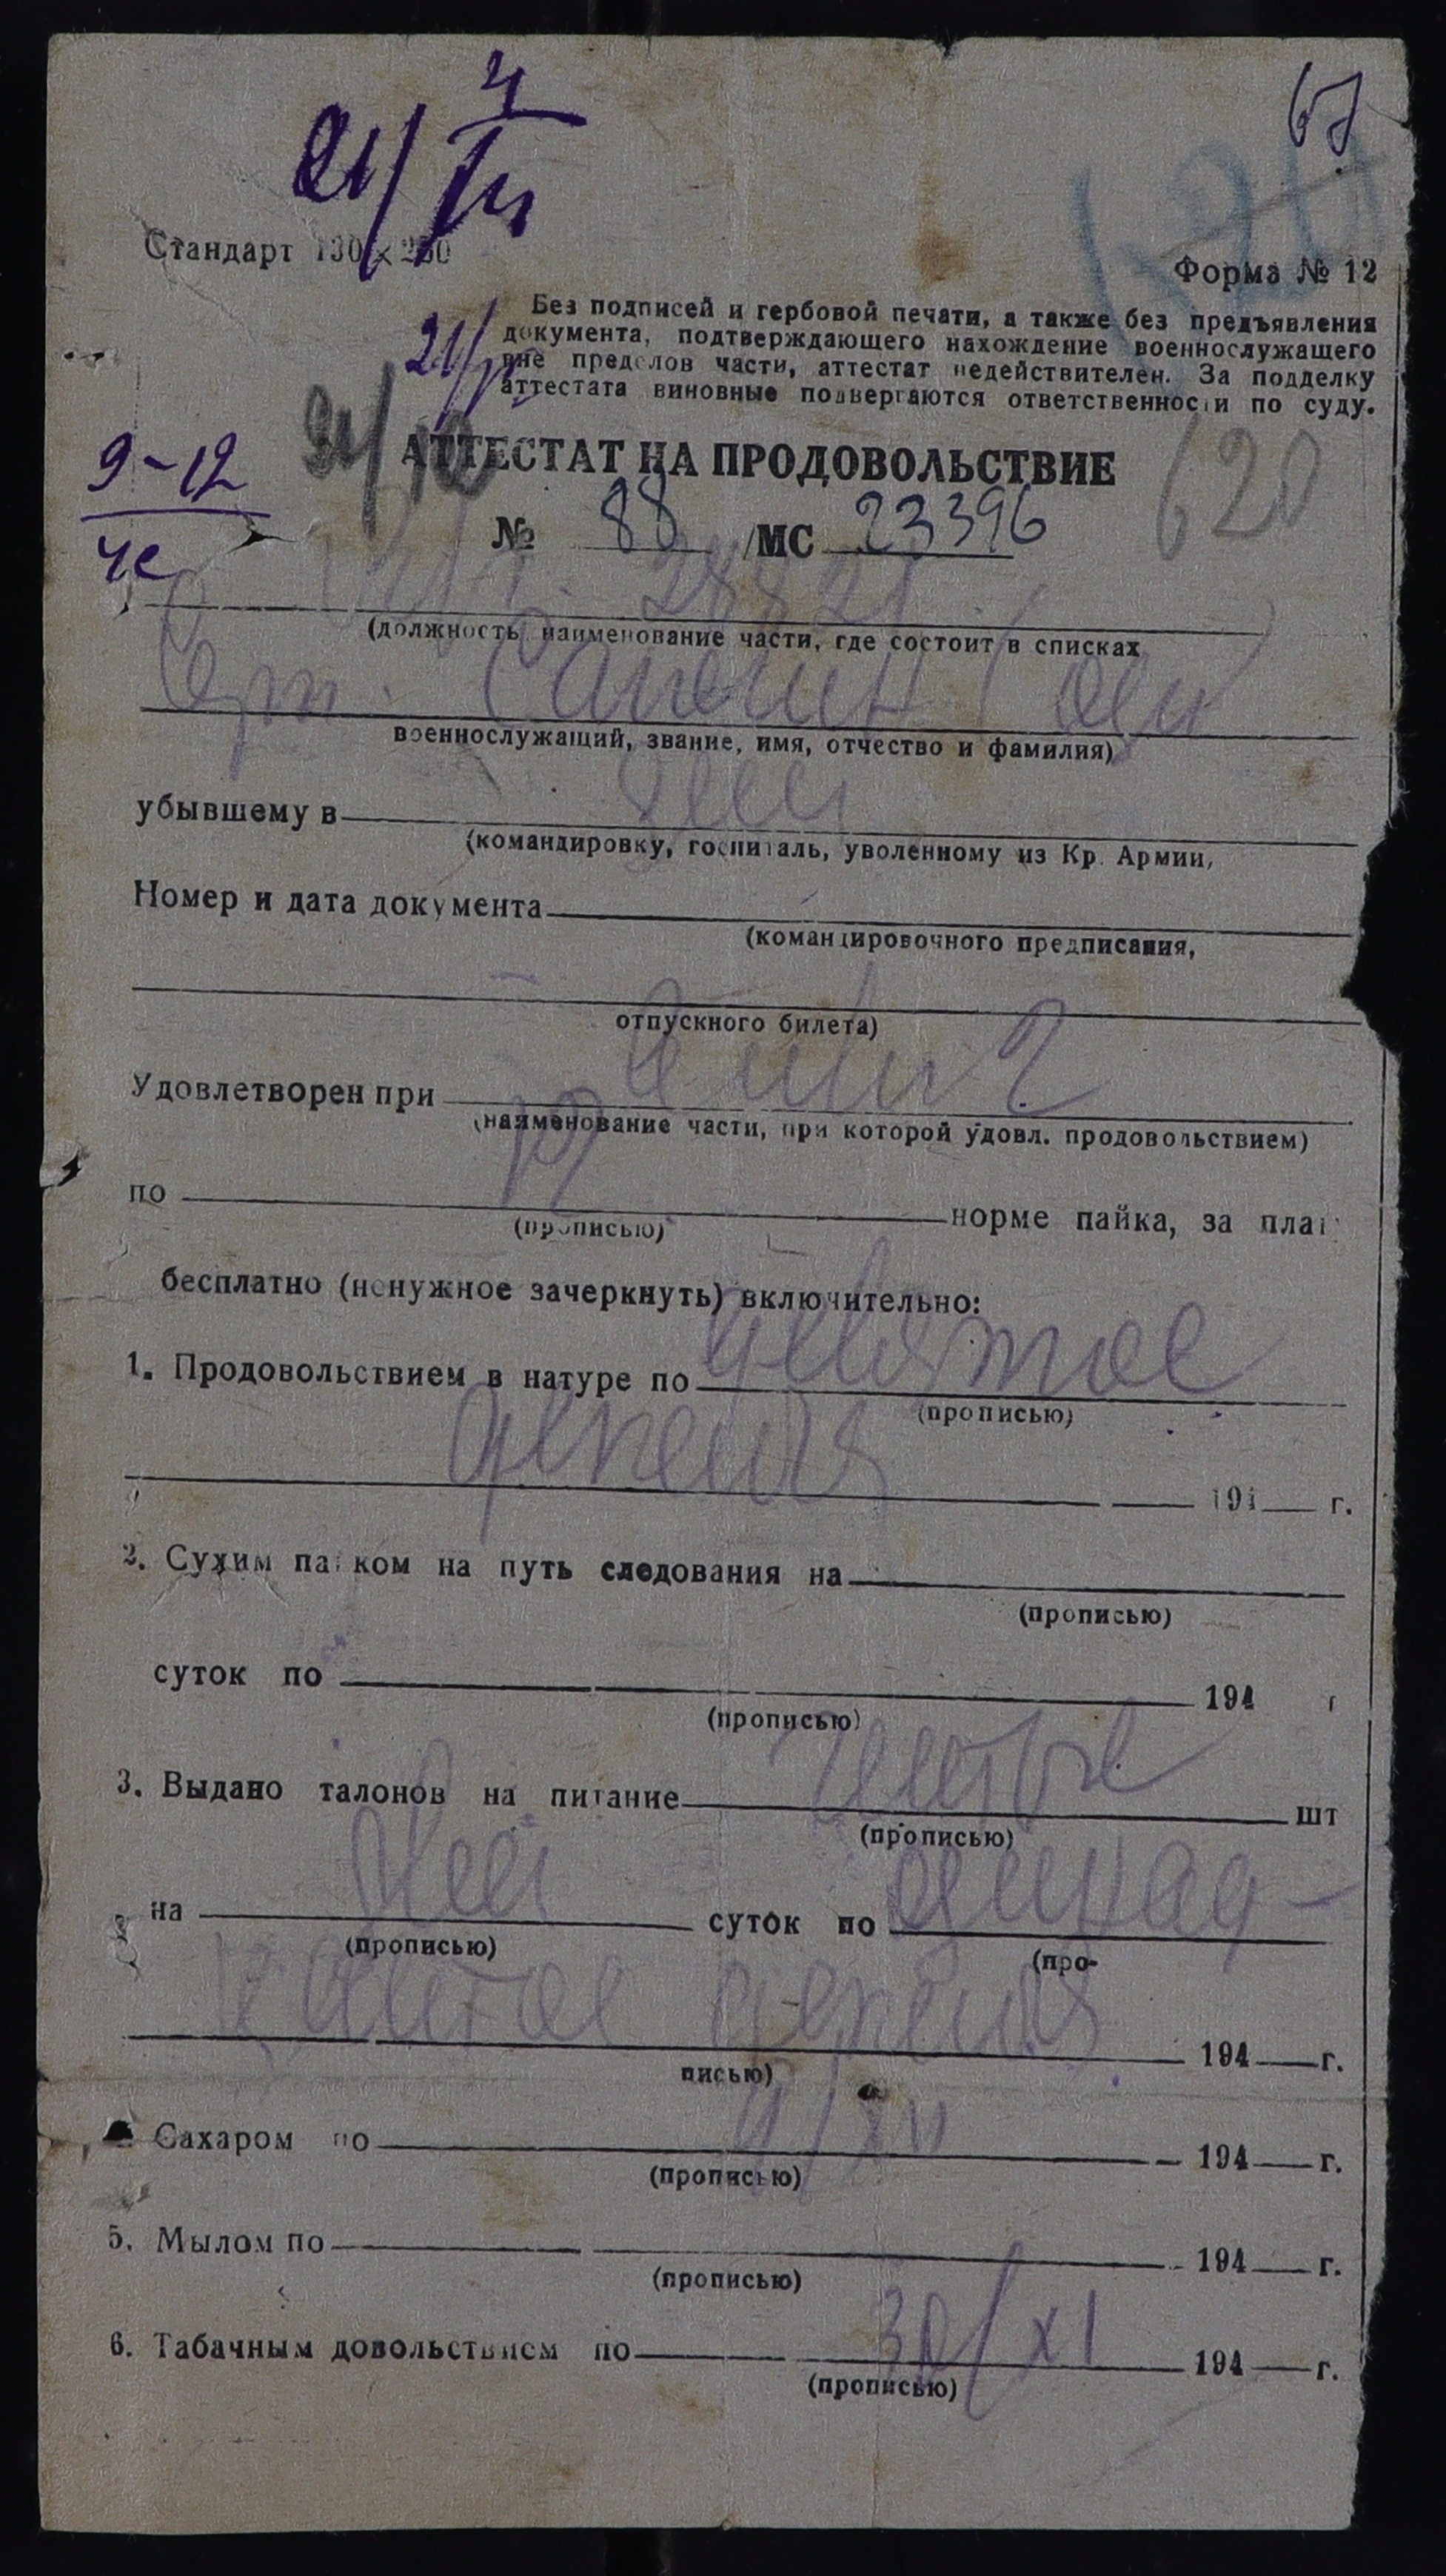 67
Стандарт 130 × 250
Форма № 12
Без подписей и гербовой печати, а также без предъявления
документа, подтверждающего нахождение военнослужащего
вне пределов части, аттестат недействителен. За подделку
аттестата виновные подвергаются ответственности по суду.
9-12
АТТЕСТАТ НА ПРОДОВОЛЬСТВИЕ
620
№ 88 /МС 23396
(должность, наименование части, где состоит в списках
военнослужащий, звание, имя, отчество и фамилия)
убывшему в
(командировку, госпиталь, уволенному из Кр. Армии,
Номер и дата документа
(командировочного предписания,
отпускного билета)
Удовлетворен при
(наименование части, при которой удовл. продовольствием)
по норме пайка, за плат
(прописью)
бесплатно (ненужное зачеркнуть) включительно:
1. Продовольствием в натуре по девятое
(прописью)
декабря 194 г.
2. Сухим пайком на путь следования на
(прописью)
суток по 194 г
(прописью)
3. Выдано талонов на питание шт
(прописью)
на две суток по одинад-
(прописью) (про-
цатое декабря 194 г.
писью)
Сахаром по 194 г.
(прописью)
5. Мылом по 194 г.
(прописью)
6. Табачным довольствием по 30/XI 194 г.
(прописью)